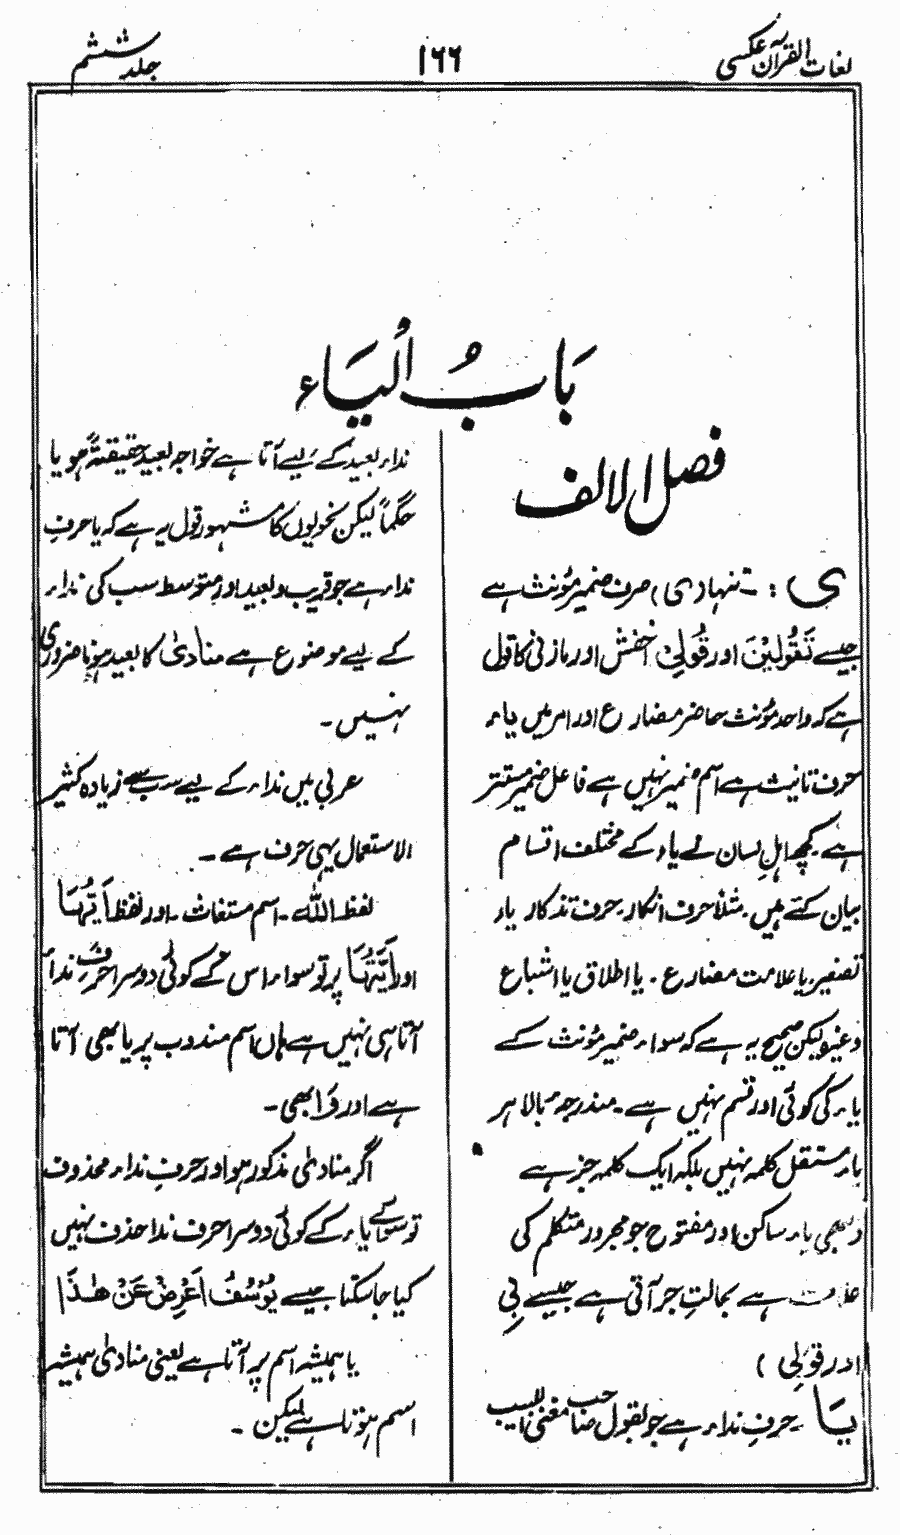 لغات القرآن عکسی
۱۶۶
جلد ششم
بَابُ الْیَاء
فصل الالف
ی : ۔ تنہا (ی) صرف ضمیر مؤنث ہے
جیسے تَقُوْلِیْنَ اور قُوْلِیْ اخفش اور مازنی کا قول
ہے کہ واحد مؤنث حاضر مضارع اور امر میں یاء
حرف تانیث ہے اسم ضمیر نہیں ہے فاعل ضمیر مستتر
ہے۔ کچھ اہلِ لسان نے یاء کے مختلف اقسام
بیان کئے ہیں۔ مثلاً حرف انکار۔ حرف تذکار یاء
تصغیر یا علامت مضارع۔ یا اطلاق یا اشباع
وغیرہ لیکن صحیح یہ ہے کہ سواء ضمیر مؤنث کے
یاء کی کوئی اور قسم نہیں ہے۔ مندرجہ بالا ہر
یاء مستقل کلمہ نہیں بلکہ ایک کلمہ جز ہے
دبھی یاء ساکن اور مفتوح جو مجرور متکلم کی
علامت ہے بحالتِ جر آتی ہے جیسے بِی
اور قولِی )
یَا ۔ حرفِ نداء ہے جو بقول صاحب مغنی اللبیب
نداء بعید کے لیے آتا ہے خواجہ بعید حقیقتہً ہو یا
حکماً لیکن نحویوں کا مشہور قول یہ ہے کہ یا حرفِ
نداء ہے جو قریب و بعید اور متوسط سب کی نداء
کے لیے موضوع ہے منادیٰ کا بعید ہونا ضروری
نہیں ۔
عربی میں نداء کے لیے سب سے زیادہ کثیر
الاستعمال یہی حرف ہے ۔
لفظ اللّٰہ ۔ اسم مستغاث ۔ اور لفظ اَیُّہَا
اور اَیَّتُہَا پر تو سواء اس کے کوئی دوسرا حرف نداء
آتا ہی نہیں ہے ہاں اسم مندوب پر یا بھی آتا
ہے اور وَا بھی ۔
اگر منادیٰ مذکور ہو اور حرفِ نداء محذوف
تو سوائے یاء کے کوئی دوسرا حرف ندا حذف نہیں
کیا جا سکتا جیسے یُوْسُفُ اَعْرِضْ عَنْ ھٰذَا
یا ہمیشہ اسم پر آتا ہے یعنی منادیٰ ہمیشہ
اسم ہوتا ہے لیکن ۔